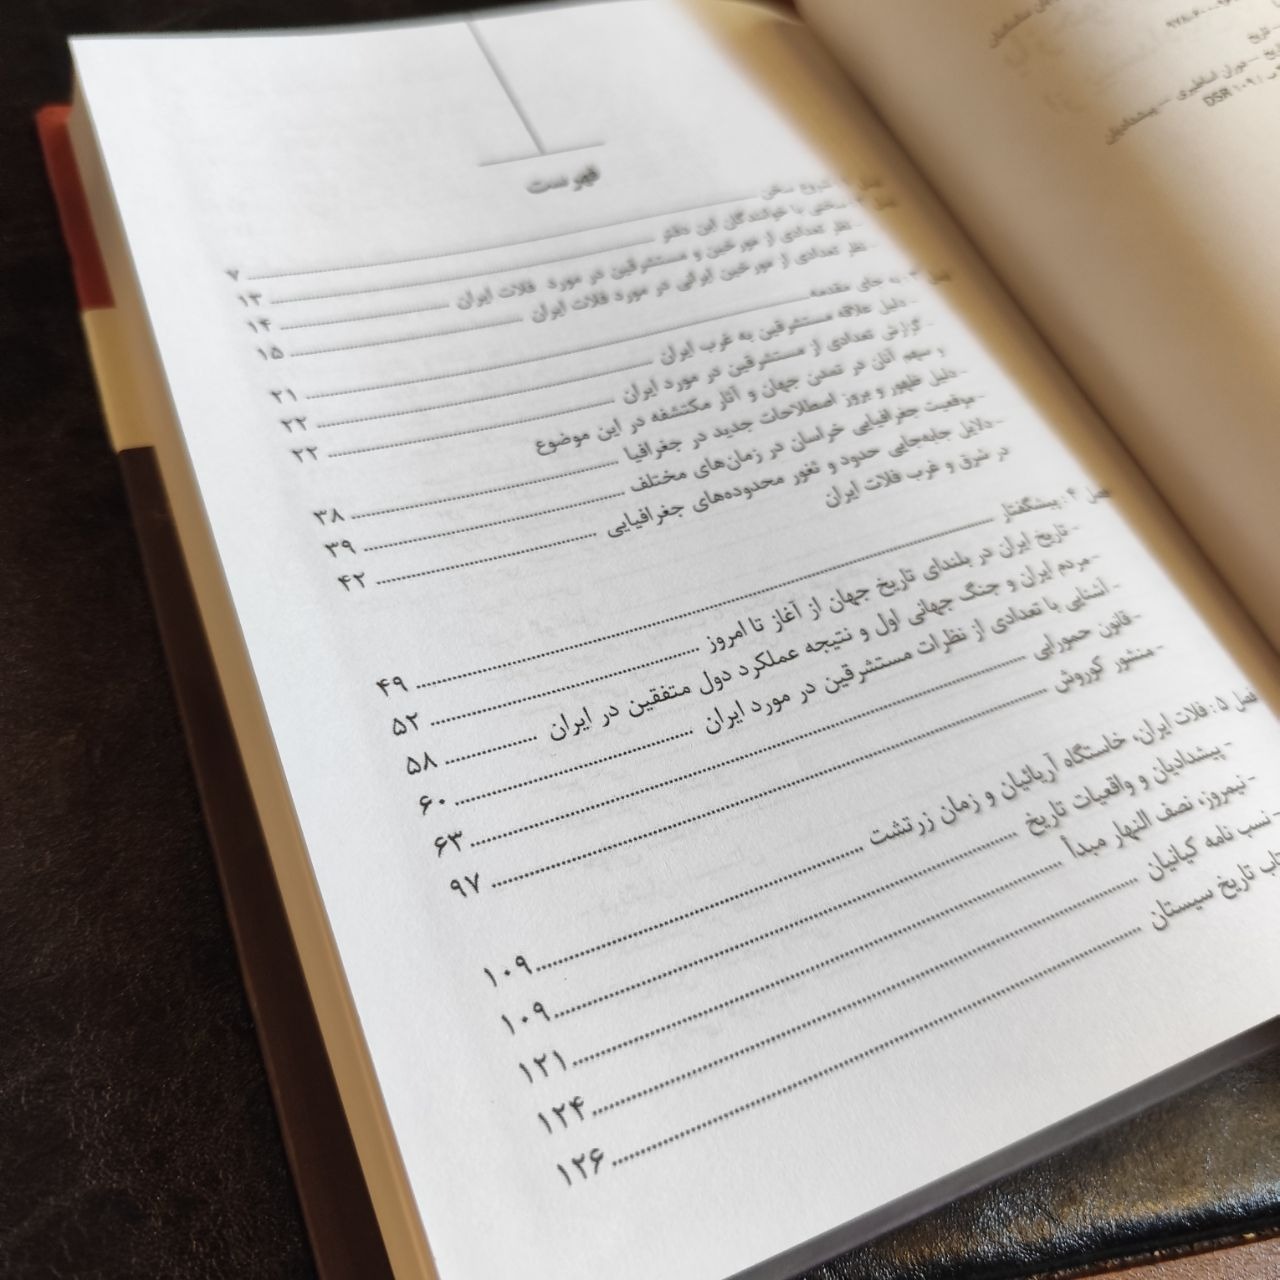 فهرست
شروع سخن ۷
سخنی با خوانندگان این دفتر ۱۳
- نظر تعدادی از مورخین و مستشرقین در مورد فلات ایران ۱۴
- نظر تعدادی از مورخین ایرانی در مورد فلات ایران ۱۵
به جای مقدمه ۲۱
- دلیل علاقه مستشرقین به غرب ایران ۲۲
- گزارش تعدادی از مستشرقین در مورد ایران ۲۳
و سهم آنان در تمدن جهان و آثار مکتشفه در این موضوع
- دلیل ظهور و بروز اصطلاحات جدید در جغرافیا ۳۸
- موقعیت جغرافیایی خراسان در زمان‌های مختلف ۳۹
- دلایل جابه‌جایی حدود و ثغور محدوده‌های جغرافیایی ۴۲
در شرق و غرب فلات ایران
فصل ۴: پیشگفتار ۴۹
- تاریخ ایران در بلندای تاریخ جهان از آغاز تا امروز ۵۲
- مردم ایران و جنگ جهانی اول و نتیجه عملکرد دول متفقین در ایران ۵۸
- آشنایی با تعدادی از نظرات مستشرقین در مورد ایران ۶۰
- قانون حمورابی ۶۳
- منشور کوروش ۹۷
فصل ۵: فلات ایران، خاستگاه آریائیان و زمان زرتشت ۱۰۹
- پیشدادیان و واقعیات تاریخ ۱۰۹
- نیمروز، نصف النهار مبدأ ۱۲۱
- نسب نامه کیانیان ۱۲۴
تاریخ سیستان ۱۲۶
تاریخ
دوران اساطیری — پیشدادیان
DSR ۱۰۹